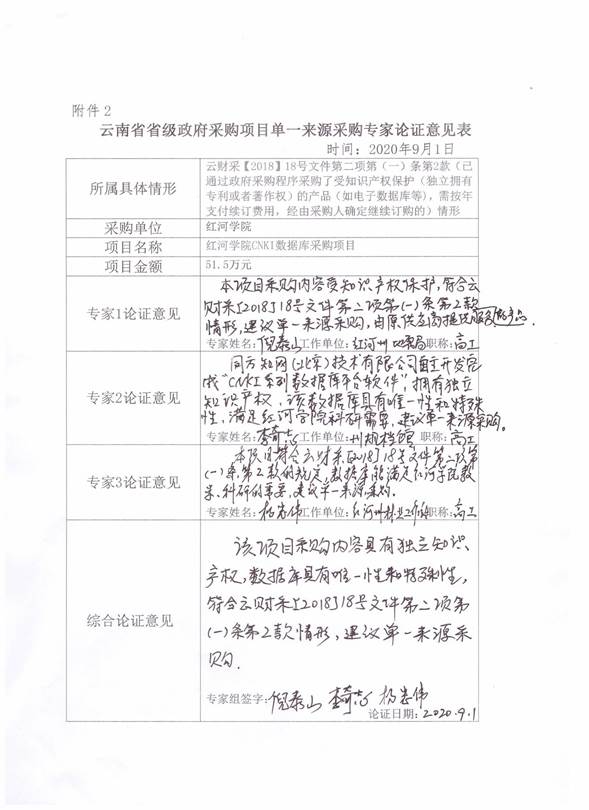 附件2
云南省省级政府采购项目单一来源采购专家论证意见表
时间：2020年9月1日
所属具体情形
云财采【2018】18号文件第二项第（一）条第2款（已
通过政府采购程序采购了受知识产权保护（独立拥有
专利或者著作权）的产品（如电子数据库等），需按年
支付续订费用，经由采购人确定继续订购的）情形
采购单位
红河学院
项目名称
红河学院CNKI数据库采购项目
项目金额
51.5万元
专家1论证意见
本项目采购内容受知识产权保护，符合云
财采[2018]18号文件第二项第(一)条第2款
情形，建议单一来源采购，由原供应商提供服务
专家姓名：倪泰山 工作单位：红河州 职称：高工
专家2论证意见
同方知网(北京)技术有限公司自主开发完
成"CNKI系列数据库平台软件"拥有独立
知识产权，该数据库具有唯一性和特殊
性，满足红河学院科研需要，建议单一来源采购。
专家姓名：李奇志 工作单位：州规档馆 职称：高工
专家3论证意见
本项目符合云财采[2018]18号文件第二项第
(一)条第2款的规定，数据库能满足红河学院教
学、科研的需要，建议单一来源采购。
专家姓名： 工作单位：红河州林业工作站 职称：高工
综合论证意见
该项目采购内容具有独立知识
产权，数据库具有唯一性和特殊性，
符合云财采[2018]18号文件第二项第
(一)条第2款情形，建议单一来源采
购.
专家组签字：倪泰山 李奇志
论证日期：2020.9.1